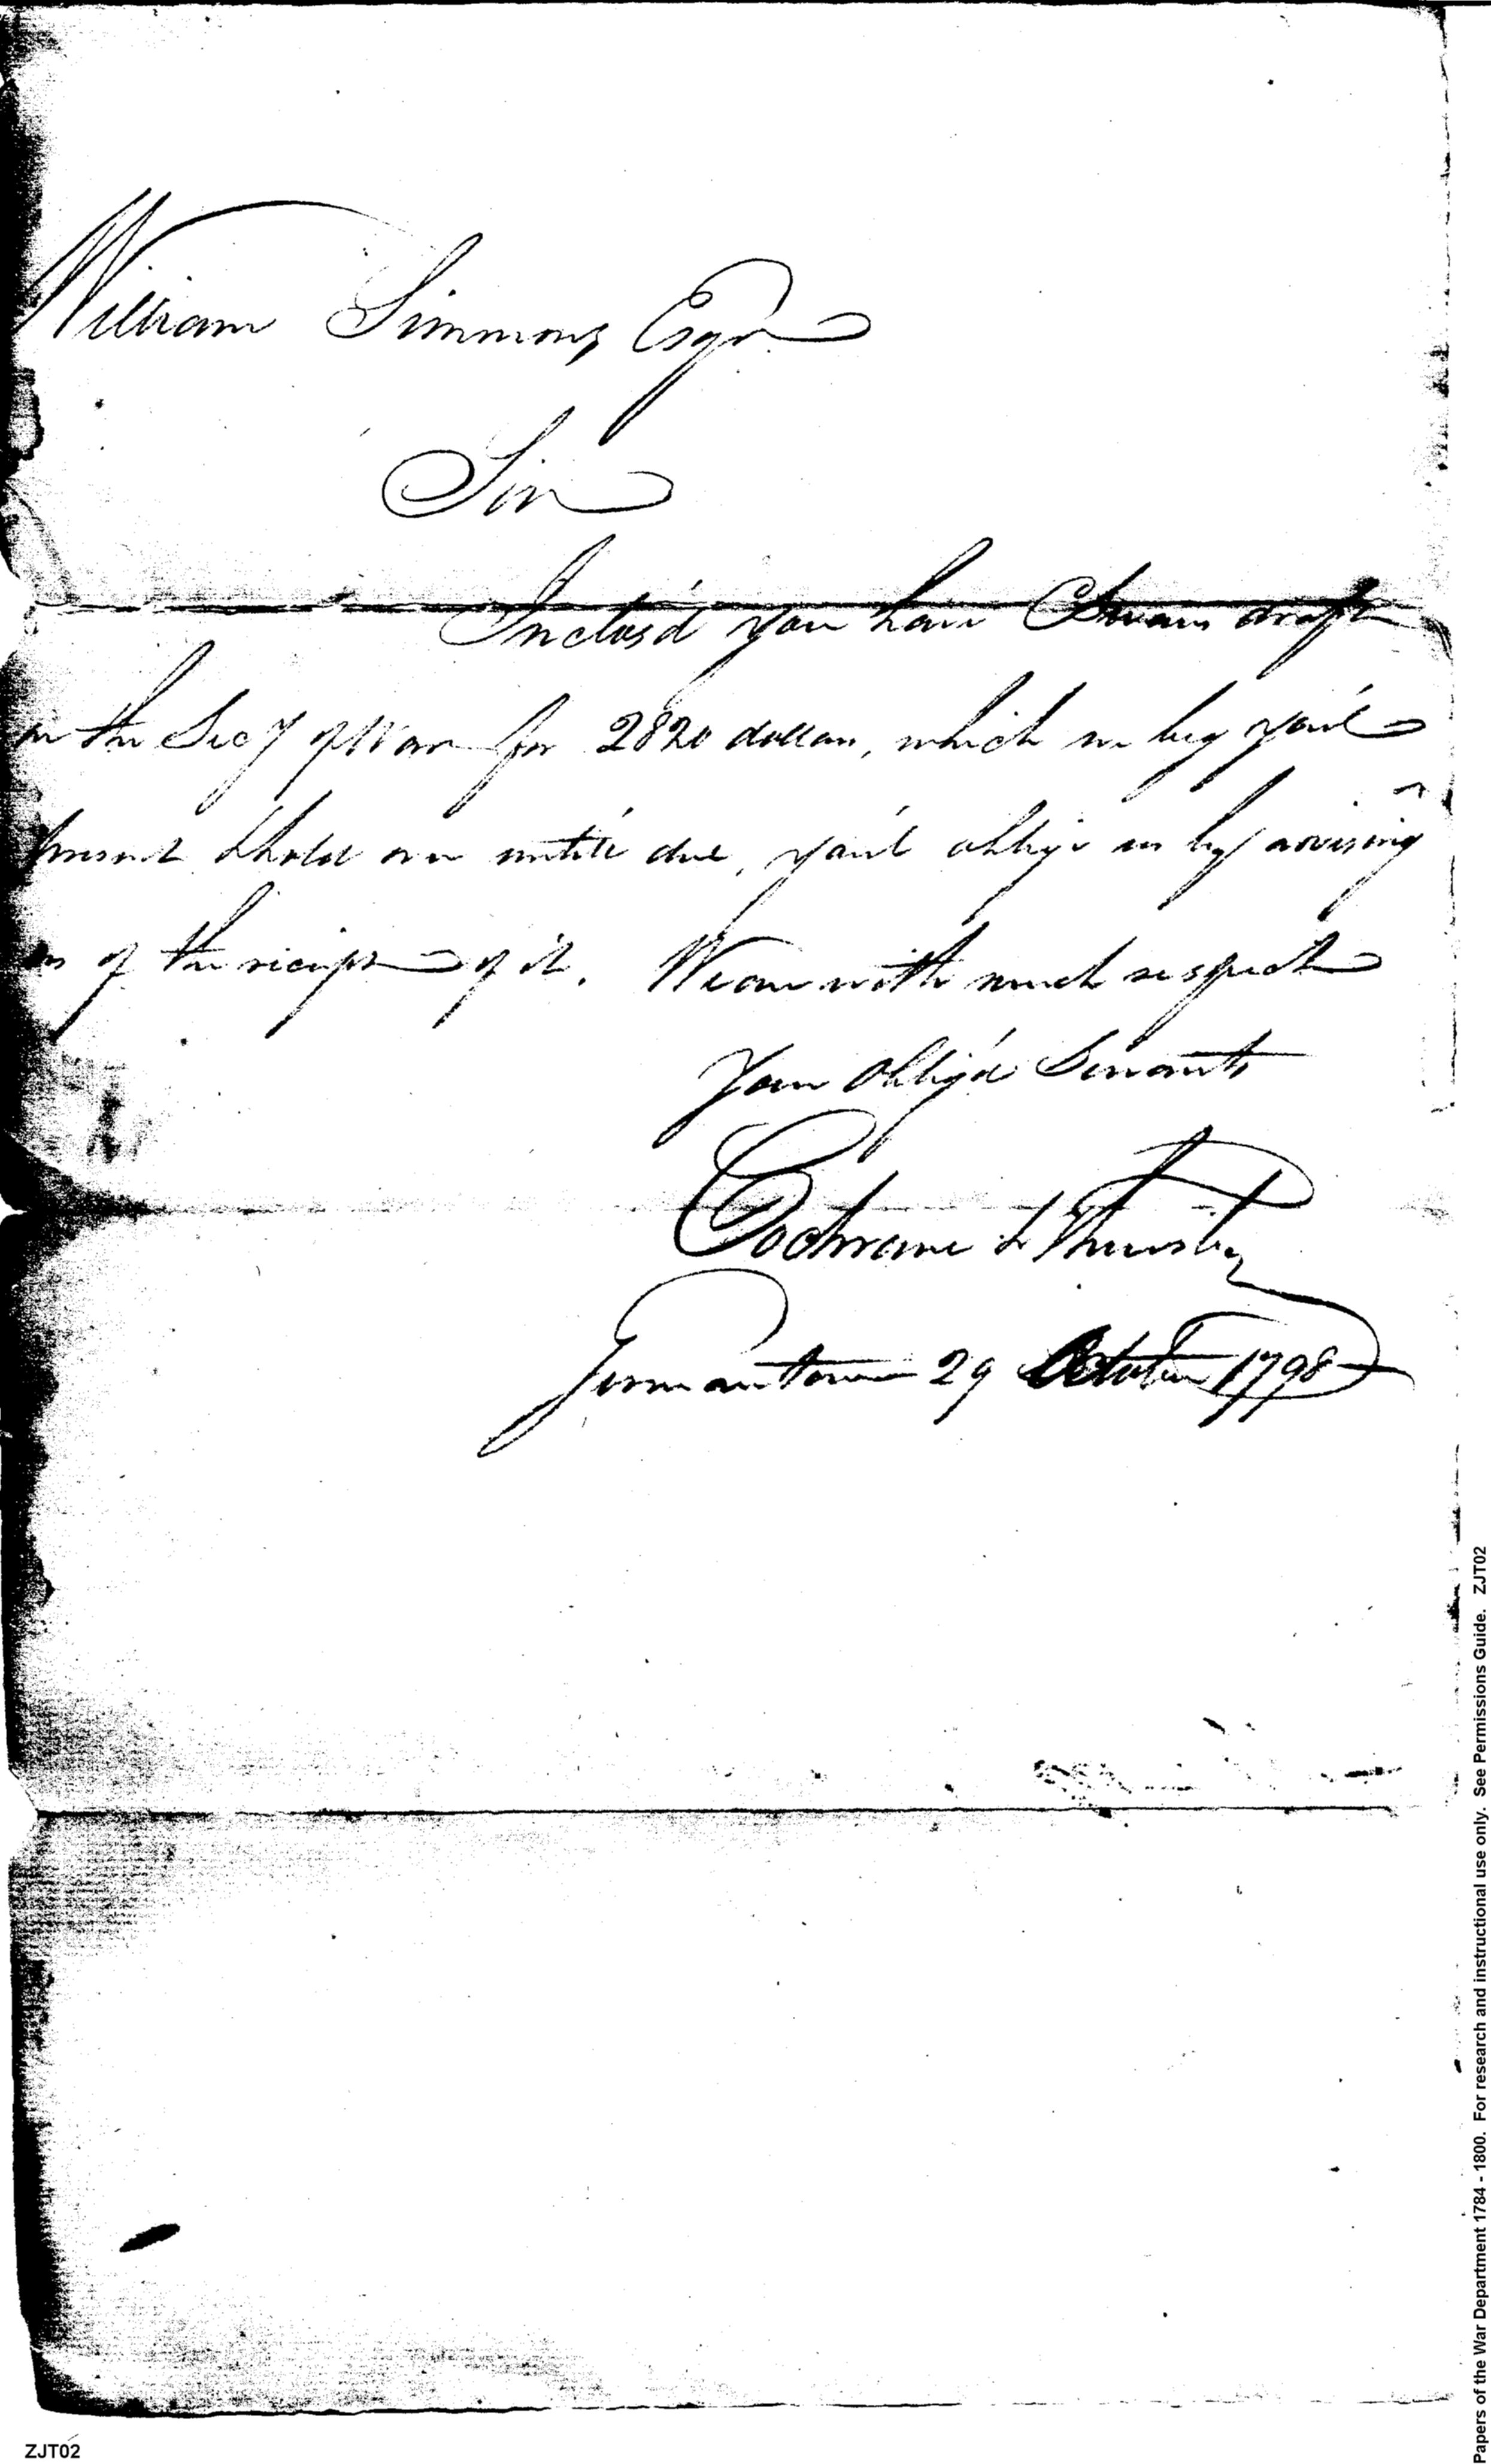 William Simmons Esqr
Sir
Inclos'd you have Swans draft
on the Secy of War for 2820 dollars, which we beg you'l
present & hold over until due, you'l oblige us by advising
us of the receipt of it. We are with much respect
Your Oblig'd Servants
Cochrane & Thursby
Germantown 29 October 1798
ZJT02
Papers of the War Department 1784 - 1800. For research and instructional use only. See Permissions Guide. ZJT02